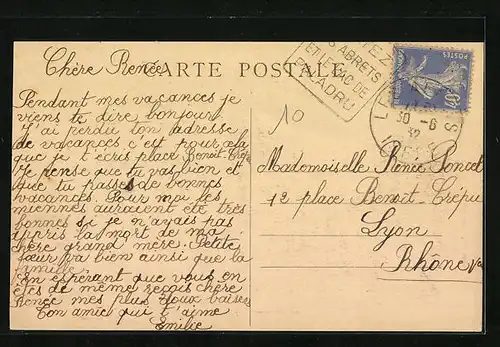 CARTE POSTALE
Chère Renée
Pendant mes vacances je
viens te dire bonjour
J'ai perdu ton adresse
de vacances c'est pour cela
que je t'écris place Benoit-Crépu
Je pense que tu vas bien et
que tu passes de bonnes
vacances. Pour moi les
miennes auraient été très
bonnes si je n'avais pas
appris la mort de ma
chère grand mère. Petite
sœur va bien ainsi que la
famille.
En espérant que vous en
êtes de même reçois chère
Renée mes plus doux baisers
Ton amie qui t'aime
Emilie
ABRETS
ET LE LAC DE
PALADRU
10
30 - 8
32
Mademoiselle Renée Poncet
12 place Benoit Crépu
Lyon
Rhône